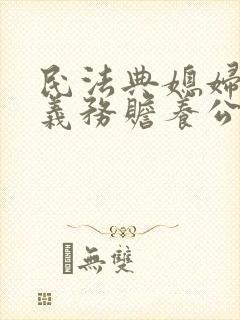 民法典媳婦
義務贍養公
無雙